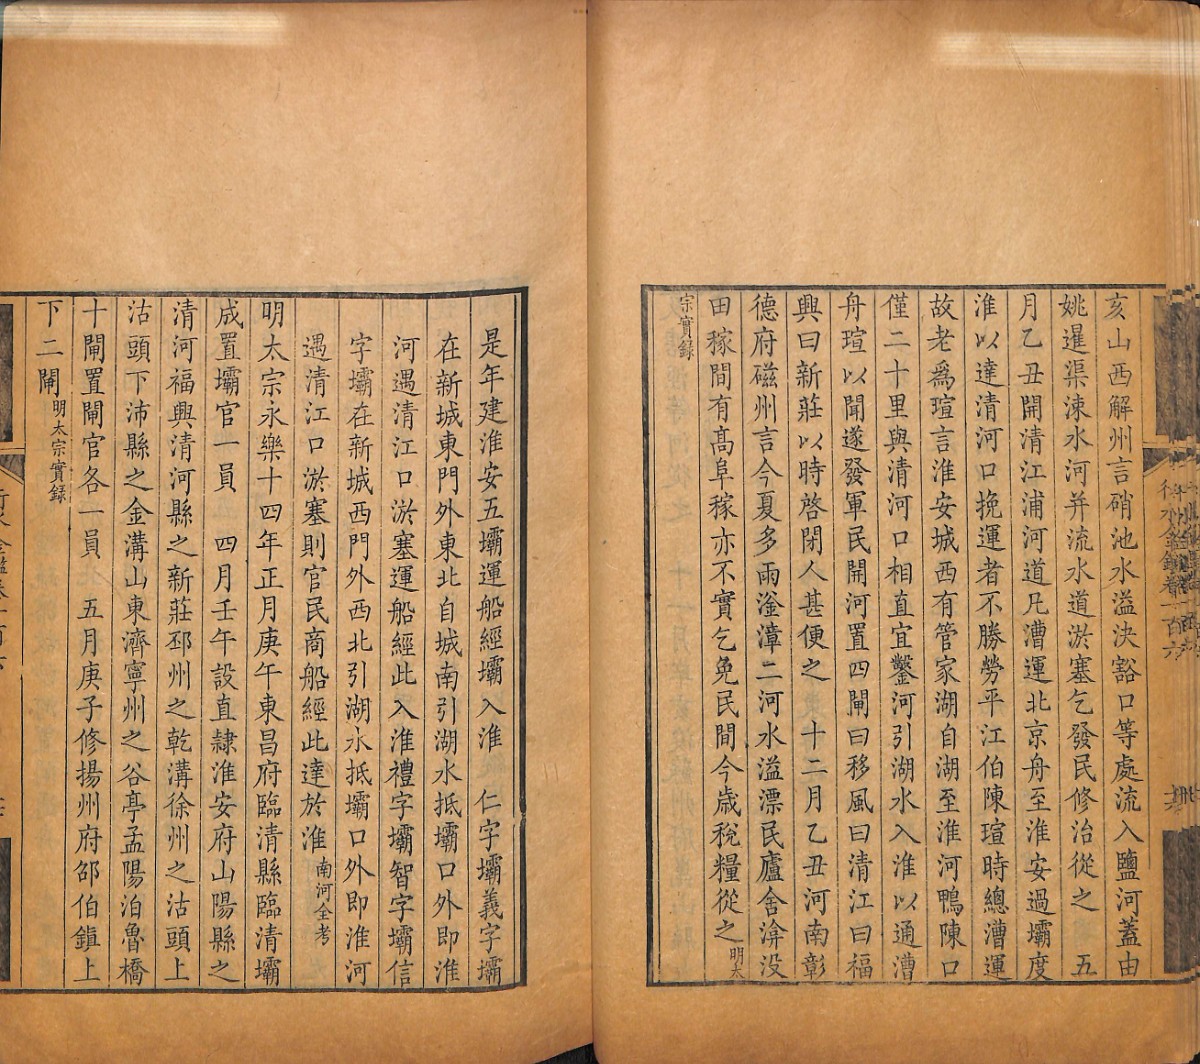 亥山西解州言硝池水溢決豁口等處流入鹽河蓋由
姚暹渠涑水河并流水道淤塞乞發民修治從之　五
月乙丑開清江浦河道凡漕運北京舟至淮安過壩度
淮以達清河口挽運者不勝勞平江伯陳瑄時總漕運
故老爲瑄言淮安城西有管家湖自湖至淮河鴨陳口
僅二十里與清河口相直宜鑿河引湖水入淮以通漕
舟瑄以聞遂發軍民開河置四閘曰移風曰清江曰福
興曰新莊以時啓閉人甚便之　十二月乙丑河南彰
德府磁州言今夏多雨滏漳二河水溢漂民廬舍渰没
田稼間有高阜稼亦不實乞免民間今歲稅糧從之明太
宗實錄
是年建淮安五壩運船經壩入淮　仁字壩義字壩
在新城東門外東北自城南引湖水抵壩口外即淮
河遇清江口淤塞運船經此入淮禮字壩智字壩信
字壩在新城西門外西北引湖水抵壩口外即淮河
遇清江口淤塞則官民商船經此達於淮南河全考
明太宗永樂十四年正月庚午東昌府臨清縣臨清壩
成置壩官一員　四月壬午設直隷淮安府山陽縣之
清河福興清河縣之新莊邳州之乾溝徐州之沽頭上
沽頭下沛縣之金溝山東濟寧州之谷亭孟陽泊魯橋
十閘置閘官各一員　五月庚子修揚州府邵伯鎮上
下二閘明太宗實錄